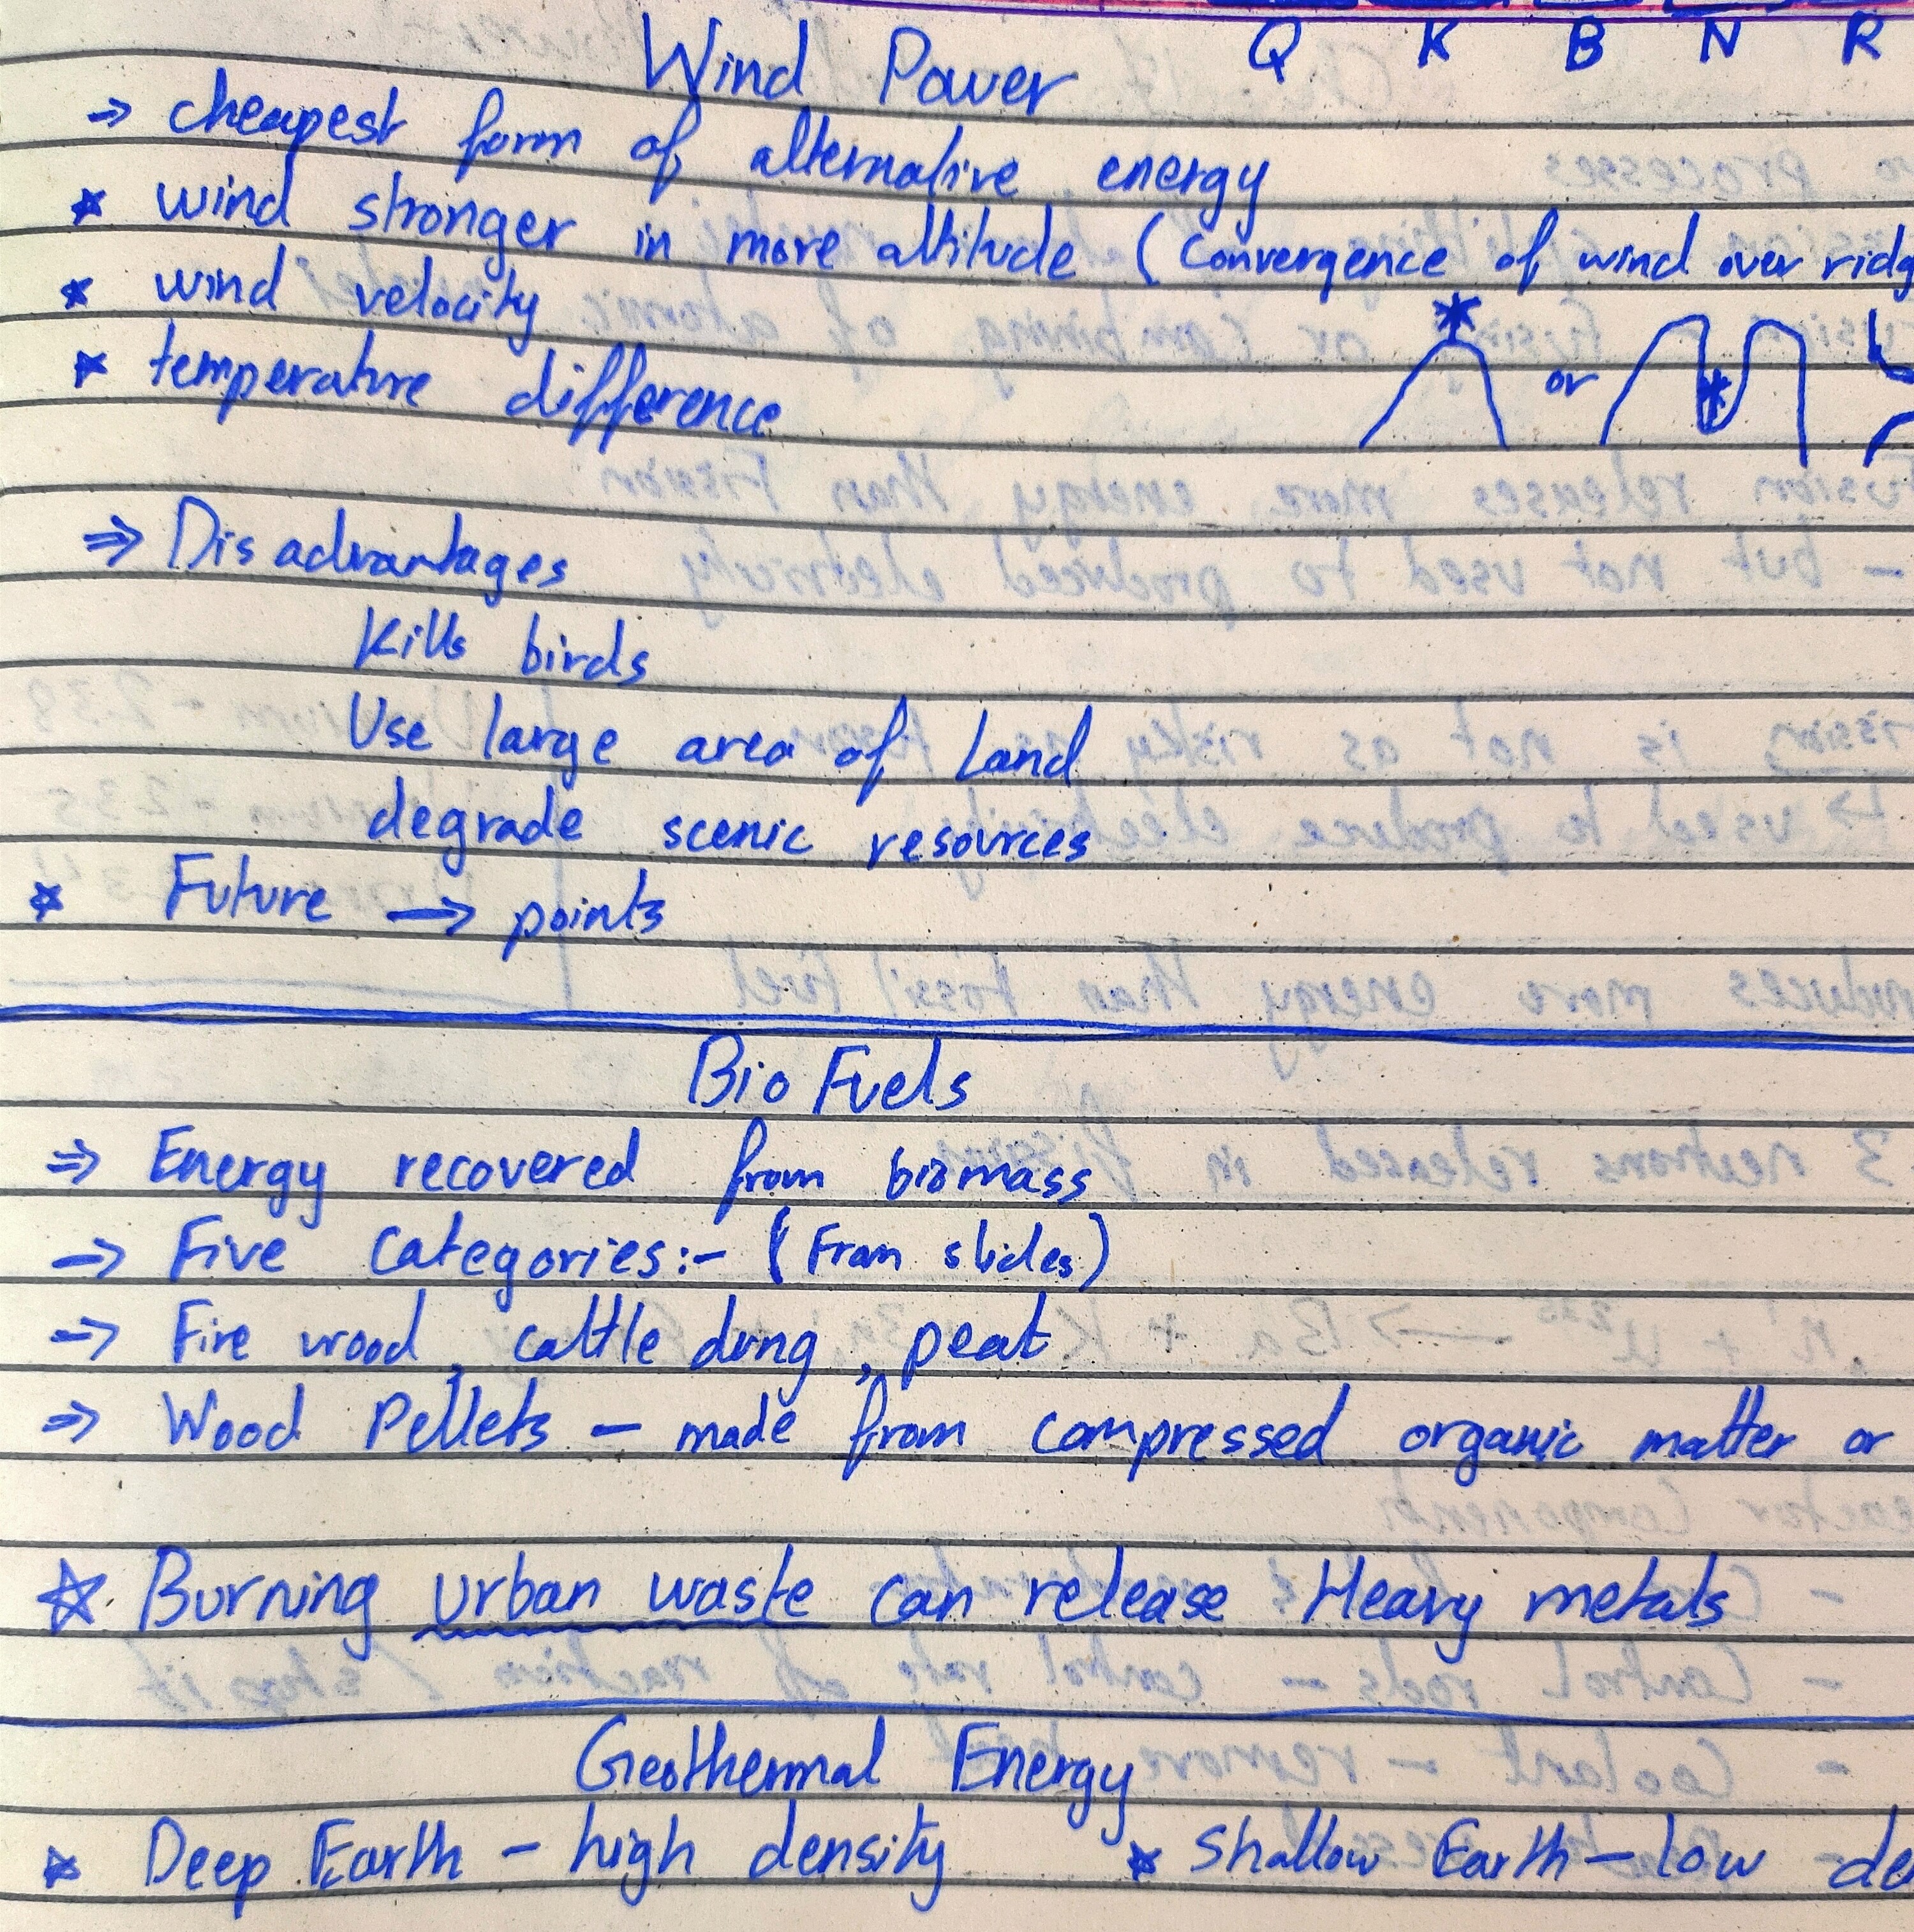 Q K B N R
Wind Power
⇒ cheapest form of alternative energy
* wind stronger in more altitude (Convergence of wind over ridg
* wind velocity
* temperature difference
* or *
⇒ Disadvantages
Kills birds
Use large area of Land
degrade scenic resources
* Future → points
Bio Fuels
⇒ Energy recovered from biomass
⇒ Five Categories:- (From slides)
⇒ Fire wood, cattle dung, peat
⇒ Wood Pellets – made from compressed organic matter or
☆ Burning urban waste can release Heavy metals
Geothermal Energy
* Deep Earth – high density * Shallow Earth – low de